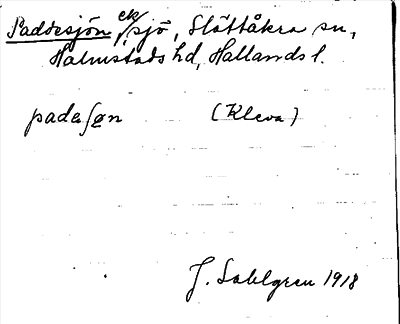 Paddesjön, ek/sjö, Slättåkra sn,
Halmstads hd, Hallands l.
padaʃøn (Kleva)
J. Sahlgren 1918